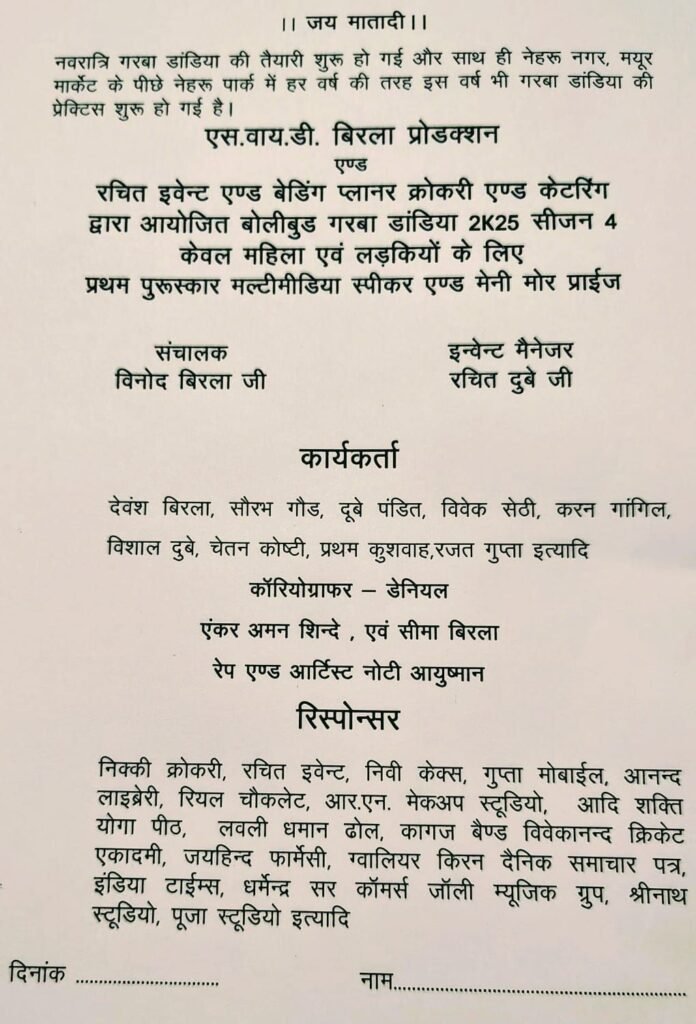 ।। जय मातादी।।
नवरात्रि गरबा डांडिया की तैयारी शुरू हो गई और साथ ही नेहरू नगर, मयूर
मार्केट के पीछे नेहरू पार्क में हर वर्ष की तरह इस वर्ष भी गरबा डांडिया की
प्रेक्टिस शुरू हो गई है।
एस.वाय.डी. बिरला प्रोडक्शन
एण्ड
रचित इवेन्ट एण्ड बेडिंग प्लानर क्रोकरी एण्ड केटरिंग
द्वारा आयोजित बोलीबुड गरबा डांडिया 2K25 सीजन 4
केवल महिला एवं लड़कियों के लिए
प्रथम पुरूस्कार मल्टीमीडिया स्पीकर एण्ड मेनी मोर प्राईज
संचालक इन्वेन्ट मैनेजर
विनोद बिरला जी रचित दुबे जी
कार्यकर्ता
देवंश बिरला, सौरभ गौड, दूबे पंडित, विवेक सेठी, करन गांगिल,
विशाल दुबे, चेतन कोष्टी, प्रथम कुशवाह,रजत गुप्ता इत्यादि
कॉरियोग्राफर – डेनियल
एंकर अमन शिन्दे , एवं सीमा बिरला
रेप एण्ड आर्टिस्ट नोटी आयुष्मान
रिस्पोन्सर
निक्की क्रोकरी, रचित इवेन्ट, निवी केक्स, गुप्ता मोबाईल, आनन्द
लाइब्रेरी, रियल चौकलेट, आर.एन. मेकअप स्टूडियो, आदि शक्ति
योगा पीठ, लवली धमान ढोल, कागज बैण्ड विवेकानन्द क्रिकेट
एकादमी, जयहिन्द फार्मेसी, ग्वालियर किरन दैनिक समाचार पत्र,
इंडिया टाईम्स, धर्मेन्द्र सर कॉमर्स जॉली म्यूजिक ग्रुप, श्रीनाथ
स्टूडियो, पूजा स्टूडियो इत्यादि
दिनांक .............................. नाम............................................................